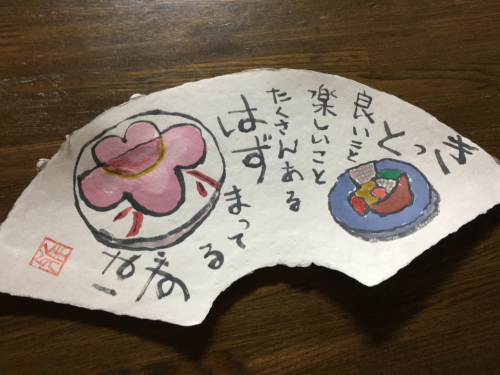 きっと
良いこと
楽しいこと
たくさんある
はず
まってる